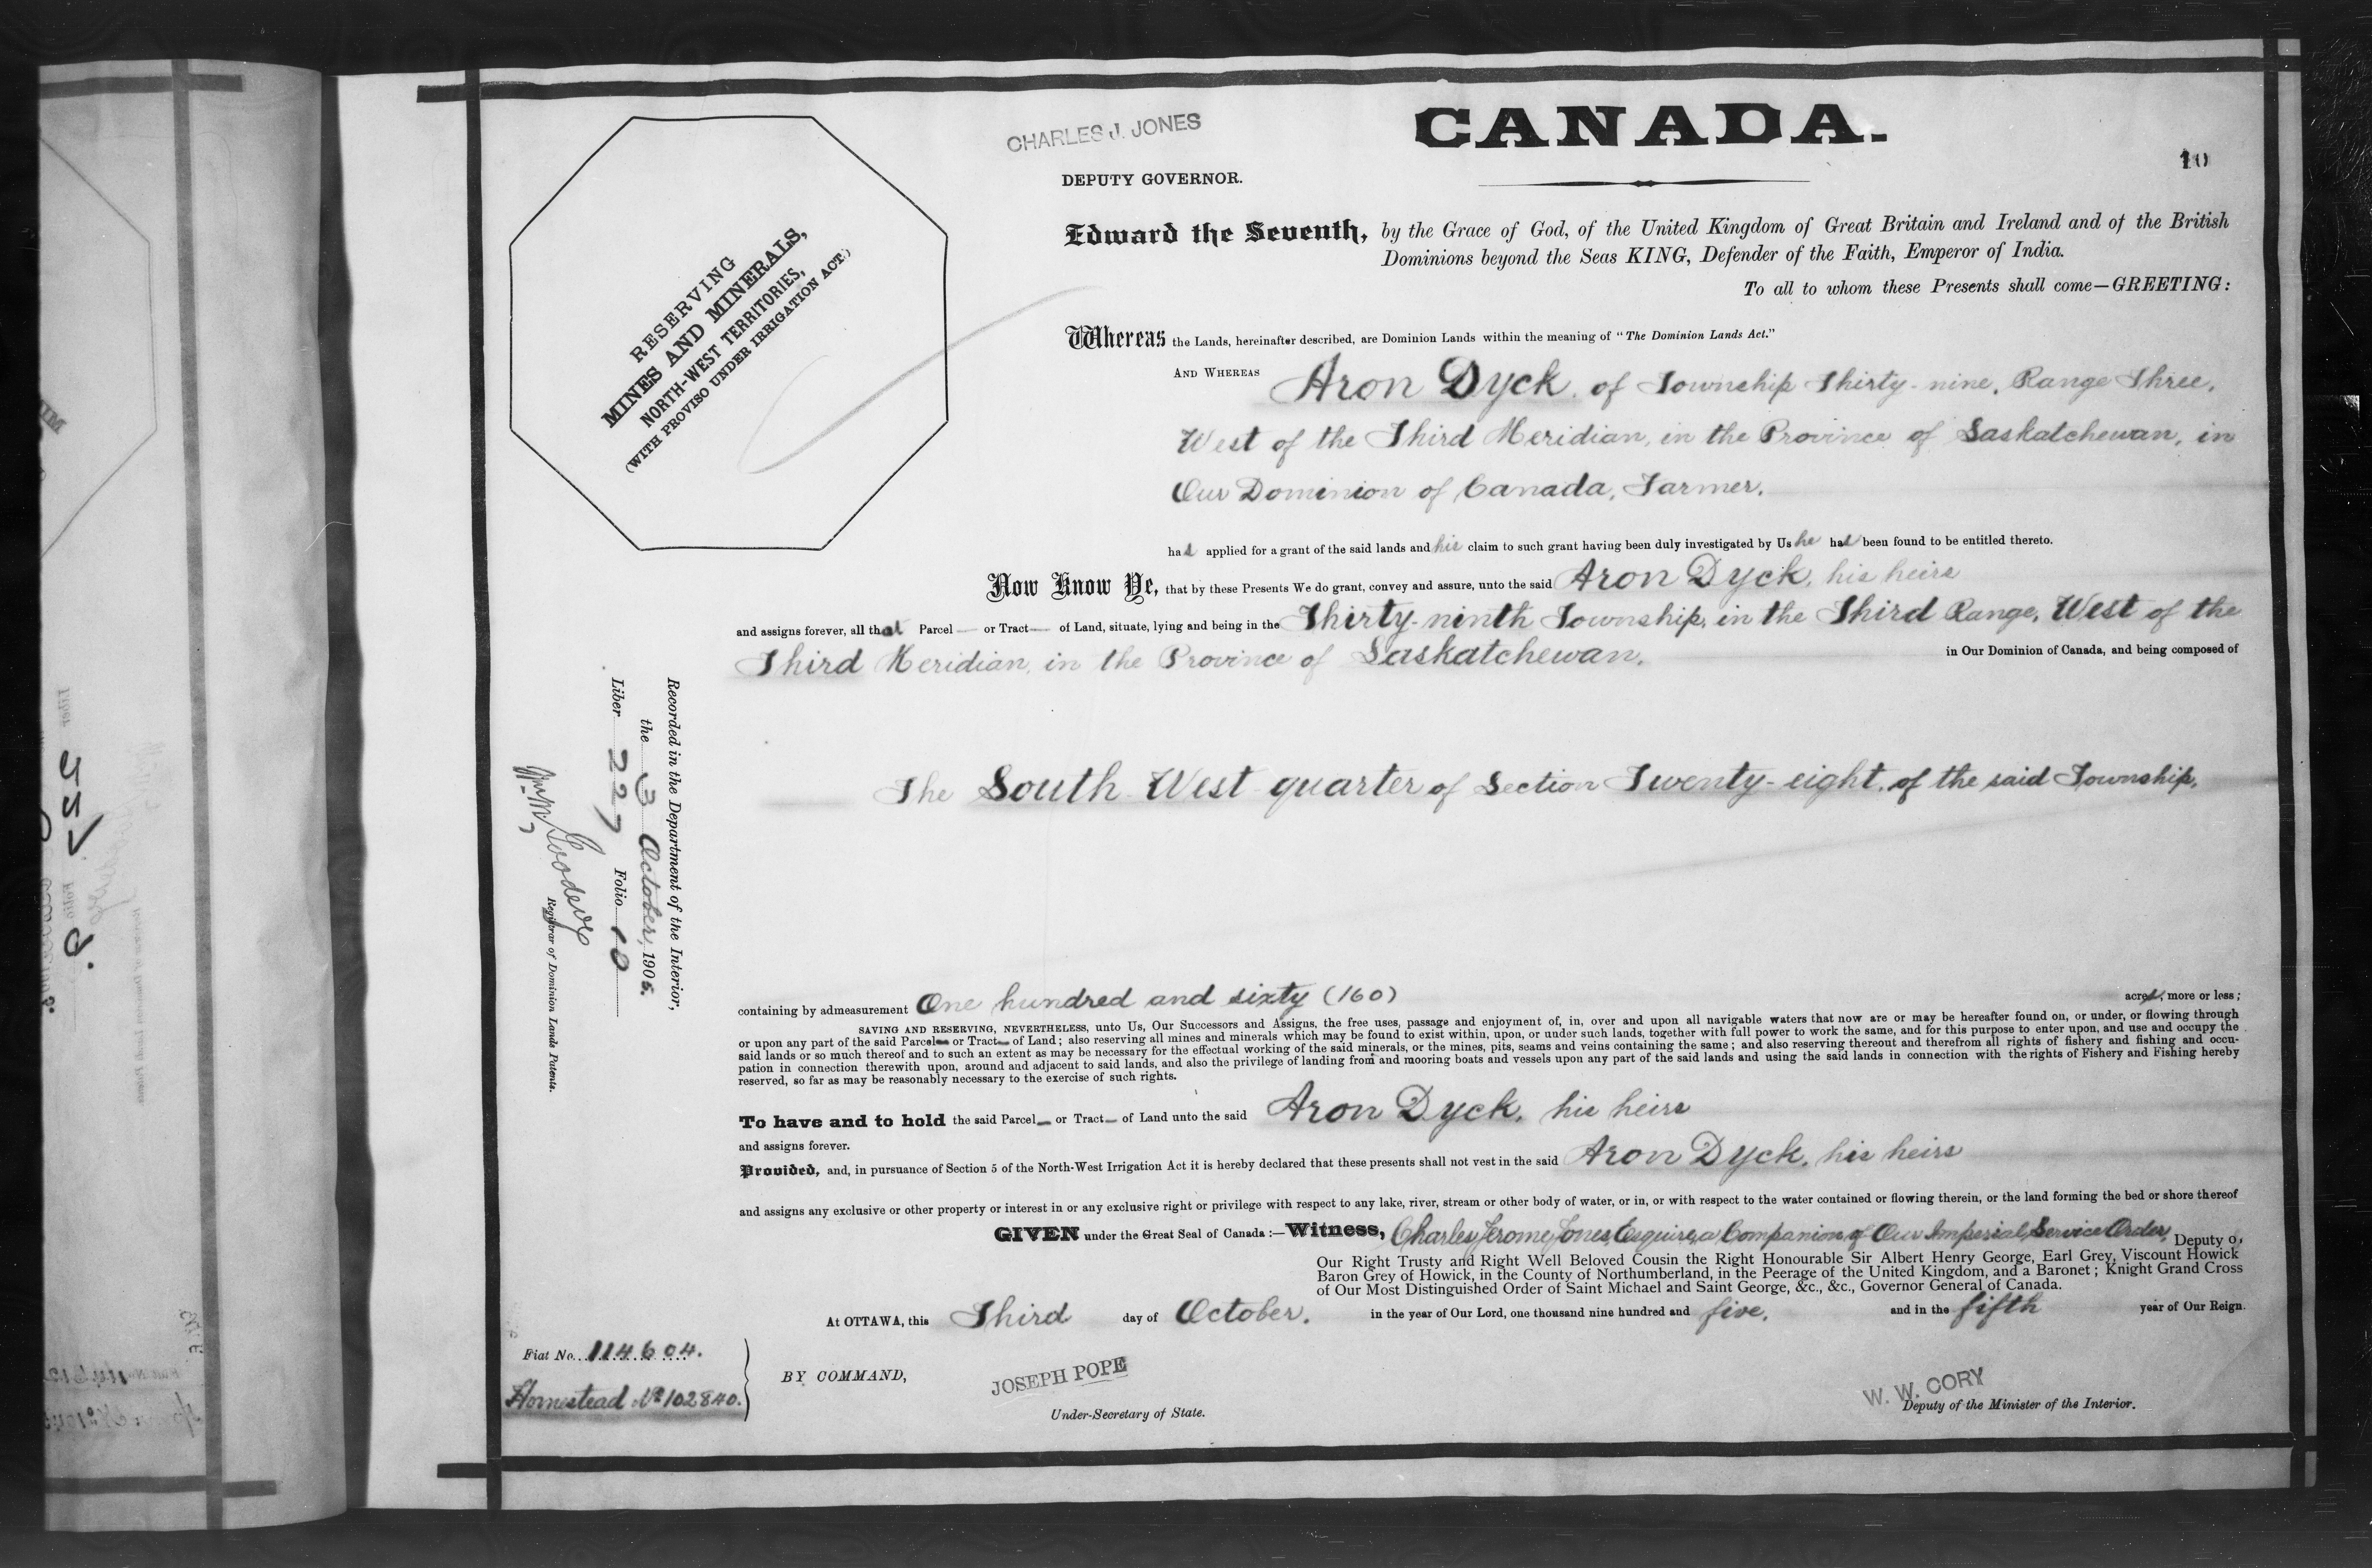 CHARLES J. JONES
CANADA.
10
DEPUTY GOVERNOR.
Edward the Seventh, by the Grace of God, of the United Kingdom of Great Britain and Ireland and of the British
Dominions beyond the Seas KING, Defender of the Faith, Emperor of India.
To all to whom these Presents shall come—GREETING:
RESERVING
MINES AND MINERALS,
NORTH-WEST TERRITORIES,
(WITH PROVISO UNDER IRRIGATION ACT)
Whereas the Lands, hereinafter described, are Dominion Lands within the meaning of "The Dominion Lands Act."
AND WHEREAS Aron Dyck, of Township Thirty-nine, Range Three,
West of the Third Meridian, in the Province of Saskatchewan, in
Our Dominion of Canada, Farmer,
has applied for a grant of the said lands and his claim to such grant having been duly investigated by Us he has been found to be entitled thereto.
Now Know Ye, that by these Presents We do grant, convey and assure, unto the said Aron Dyck, his heirs
and assigns forever, all that Parcel — or Tract — of Land, situate, lying and being in the Thirty-ninth Township, in the Third Range, West of the
Third Meridian, in the Province of Saskatchewan, in Our Dominion of Canada, and being composed of
The South West quarter of Section Twenty-eight, of the said Township,
Recorded in the Department of the Interior,
the 3 October, 1905.
Liber 227 Folio 10
Wm M Goodeve
Registrar of Dominion Lands Patents.
containing by admeasurement One hundred and sixty (160) acres, more or less;
SAVING AND RESERVING, NEVERTHELESS, unto Us, Our Successors and Assigns, the free uses, passage and enjoyment of, in, over and upon all navigable waters that now are or may be hereafter found on, or under, or flowing through
or upon any part of the said Parcel — or Tract — of Land; also reserving all mines and minerals which may be found to exist within, upon, or under such lands, together with full power to work the same, and for this purpose to enter upon, and use and occupy the
said lands or so much thereof and to such an extent as may be necessary for the effectual working of the said minerals, or the mines, pits, seams and veins containing the same; and also reserving thereout and therefrom all rights of fishery and fishing and occu-
pation in connection therewith upon, around and adjacent to said lands, and also the privilege of landing from and mooring boats and vessels upon any part of the said lands and using the said lands in connection with the rights of Fishery and Fishing hereby
reserved, so far as may be reasonably necessary to the exercise of such rights.
To have and to hold the said Parcel — or Tract — of Land unto the said Aron Dyck, his heirs
and assigns forever.
Provided, and, in pursuance of Section 5 of the North-West Irrigation Act it is hereby declared that these presents shall not vest in the said Aron Dyck, his heirs
and assigns any exclusive or other property or interest in or any exclusive right or privilege with respect to any lake, river, stream or other body of water, or in, or with respect to the water contained or flowing therein, or the land forming the bed or shore thereof
GIVEN under the Great Seal of Canada:—Witness, Charles Jerome Jones, Esquire, a Companion of Our Imperial Service Order, Deputy o,
Our Right Trusty and Right Well Beloved Cousin the Right Honourable Sir Albert Henry George, Earl Grey, Viscount Howick
Baron Grey of Howick, in the County of Northumberland, in the Peerage of the United Kingdom, and a Baronet; Knight Grand Cross
of Our Most Distinguished Order of Saint Michael and Saint George, &c., &c., Governor General of Canada.
At OTTAWA, this Third day of October, in the year of Our Lord, one thousand nine hundred and five, and in the fifth year of Our Reign.
Fiat No. 114604.
Homestead No 102840.
BY COMMAND,
JOSEPH POPE
Under-Secretary of State.
W. W. CORY
Deputy of the Minister of the Interior.